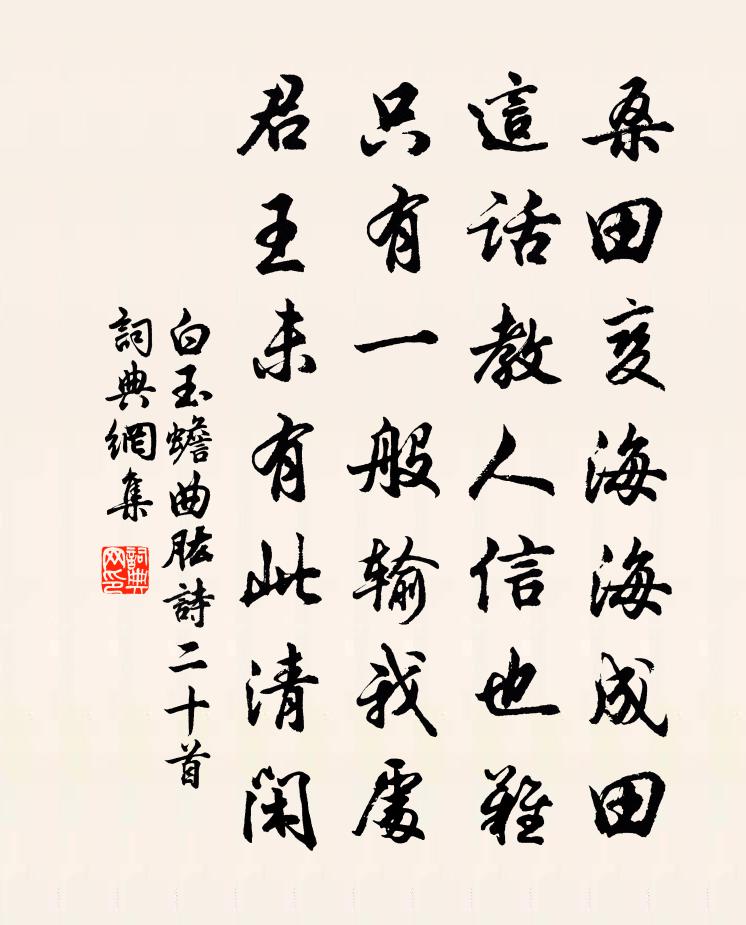 桑田变海海成田
這话教人信也難
只有一般输我處
君王未有此清闲
白玉蟾曲肱詩二十首
詞典網集
詞典網印